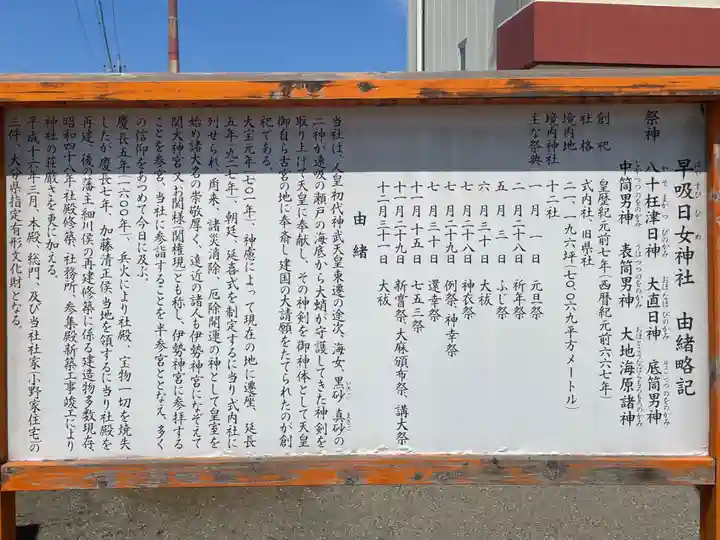 早吸日女神社　由緒略記
祭神　八十枉津日神　大直日神　底筒男神
中筒男神　表筒男神　大地海原諸神
創祀　皇暦紀元前七年（西暦紀元前六六七年）
社格　式内社 旧県社
境内地　二一、一九六坪（七〇、〇六九平方メートル）
境内神社　十二社
主な祭典　一月一日　元旦祭
二月二十八日　祈年祭
五月三日　ふじ祭
六月三十日　大祓
七月二十八日　神衣祭
七月二十九日　例祭、神幸祭
七月三十日　還幸祭
十一月十五日　七五三祭
十一月二十九日　新嘗祭、大麻頒布祭、講大祭
十二月三十一日　大祓
由緒
当社は、人皇初代神武天皇東遷の途次、海女、黒砂、真砂の
二神が速吸の瀬戸の海底から大蛸が守護してきた神剣を
取り上げて天皇に奉献し、その神剣を御神体として天皇
御自ら古宮の地に奉斎し建国の大請願をたてられたのが創
祀である。
大宝元年（七〇一年）、神慮によって現在の地に遷座、延長
五年（九二七年）、朝廷、延喜式を制定するに当り式内社に
列せられ、爾来、諸災消除、厄除開運の神として皇室を
始め諸大名の崇敬厚く、遠近の諸人も伊勢神宮になぞらえて
関大神宮又お関様（関権現）とも称し、伊勢神宮に参拝する
ことを参宮、当社に参詣することを半参宮ととなえ、多く
の信仰をあつめて今日に及ぶ。
慶長五年（一六〇〇年）、兵火により社殿、宝物一切を焼失
したが慶長七年、加藤清正侯当地を領するに当り社殿を
再建、後の藩主細川侯の再建修築に係る建造物多数現存、
昭和四十八年社殿修築、社務所、参集殿新築工事竣工により
神社の荘厳さを更に加える。
平成十六年三月、本殿、総門、及び当社社家（小野家住宅）の
三件、大分県指定有形文化財となる。